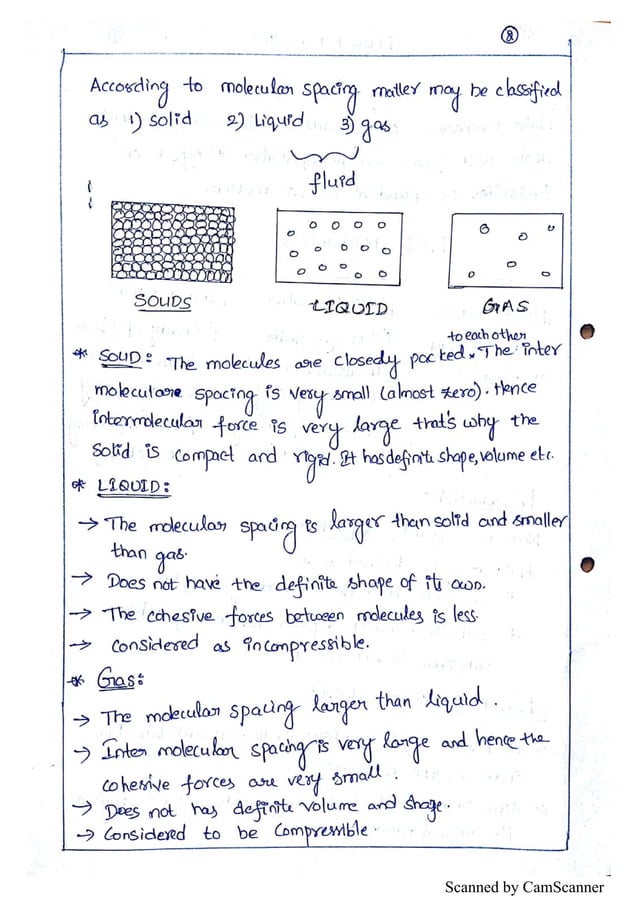 8
According to molecular spacing matter may be classified
as 1) solid 2) Liquid 3) gas
fluid
SOLIDS
LIQUID
GAS
to each other
* SOLID: The molecules are closedly packed. The inter
moleculare spacing is very small (almost zero). Hence
intermolecular force is very large that's why the
solid is compact and rigid. It has definite shape, volume etc.
* LIQUID:
→ The molecular spacing is larger than solid and smaller
than gas.
→ Does not have the definite shape of its own.
→ The cohesive forces between molecules is less.
→ considered as incompressible.
* Gas:
→ The molecular spacing larger than liquid.
→ Inter molecular spacing is very large and hence the
cohesive forces are very small.
→ Does not has definite volume and shape.
→ Considered to be Compressible.
Scanned by CamScanner